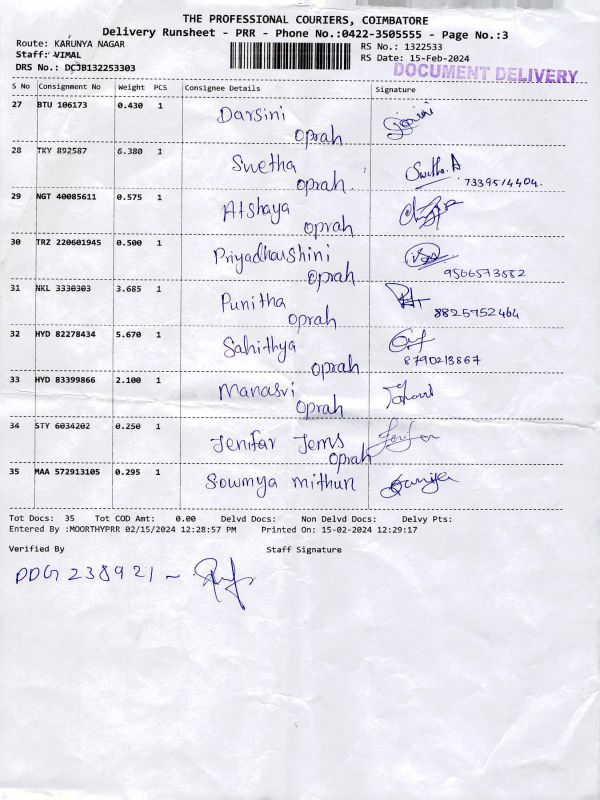 THE PROFESSIONAL COURIERS, COIMBATORE
Delivery Runsheet - PRR - Phone No.:0422-3505555 - Page No.:3
Route: KARUNYA NAGAR RS No.: 1322533
Staff: VIMAL RS Date: 15-Feb-2024
DRS No.: DCJB132253303 DOCUMENT DELIVERY
S No Consignment No Weight PCS Consignee Details Signature
27 BTU 106173 0.430 1 Darsini
oprah
28 TKY 892587 6.380 1 Swetha
oprah. 7339514404.
29 NGT 40085611 0.575 1 Atshaya
oprah
30 TRZ 220601945 0.500 1 Priyadharshini
oprah 9566573552
31 NKL 3330303 3.685 1 Punitha
oprah 8825752464
32 HYD 82278434 5.670 1 Sahithya
oprah 8790213867
33 HYD 83399866 2.100 1 Manasri
oprah
34 STY 6034202 0.250 1 Jenifar Jems
oprah
35 MAA 572913105 0.295 1 Sowmya mithun
Tot Docs: 35 Tot COD Amt: 0.00 Delvd Docs: Non Delvd Docs: Delvy Pts:
Entered By :MOORTHYPRR 02/15/2024 12:28:57 PM Printed On: 15-02-2024 12:29:17
Verified By Staff Signature
DDG 238921 ~